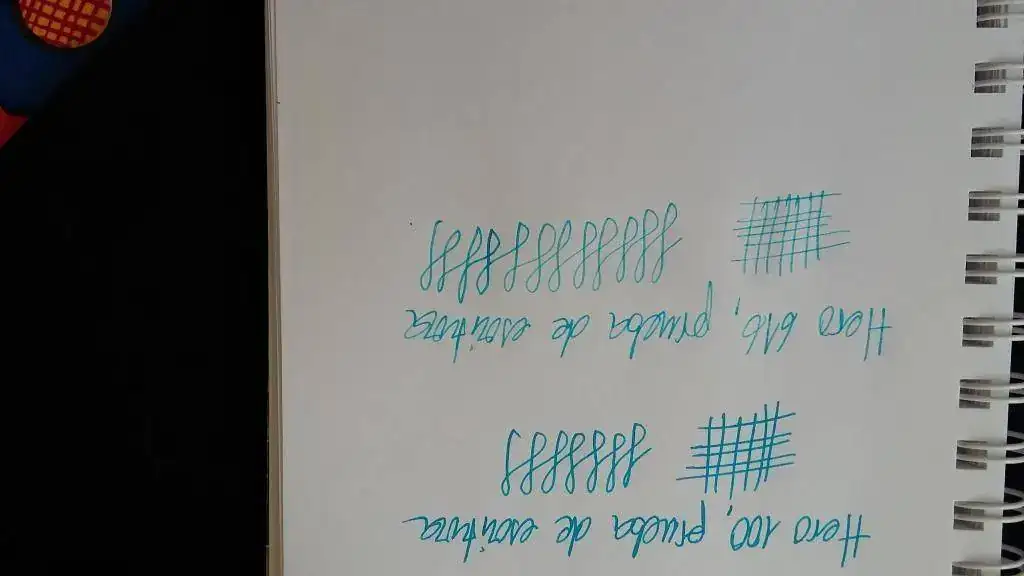 Hero 100, prueba de escritura
Hero 616, prueba de escritura